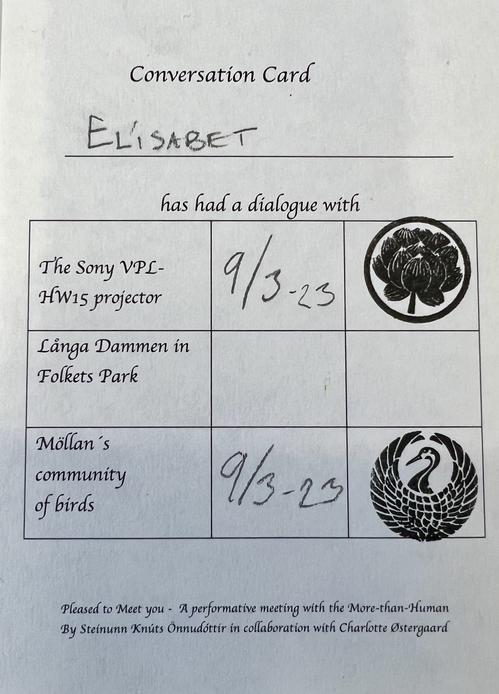 Conversation Card
ELÍSABET
has had a dialogue with
The Sony VPL-
HW15 projector
9/3-23
Långa Dammen in
Folkets Park
Möllan´s
community
of birds
9/3-23
Pleased to Meet you - A performative meeting with the More-than-Human
By Steinunn Knúts Önnudóttir in collaboration with Charlotte Østergaard